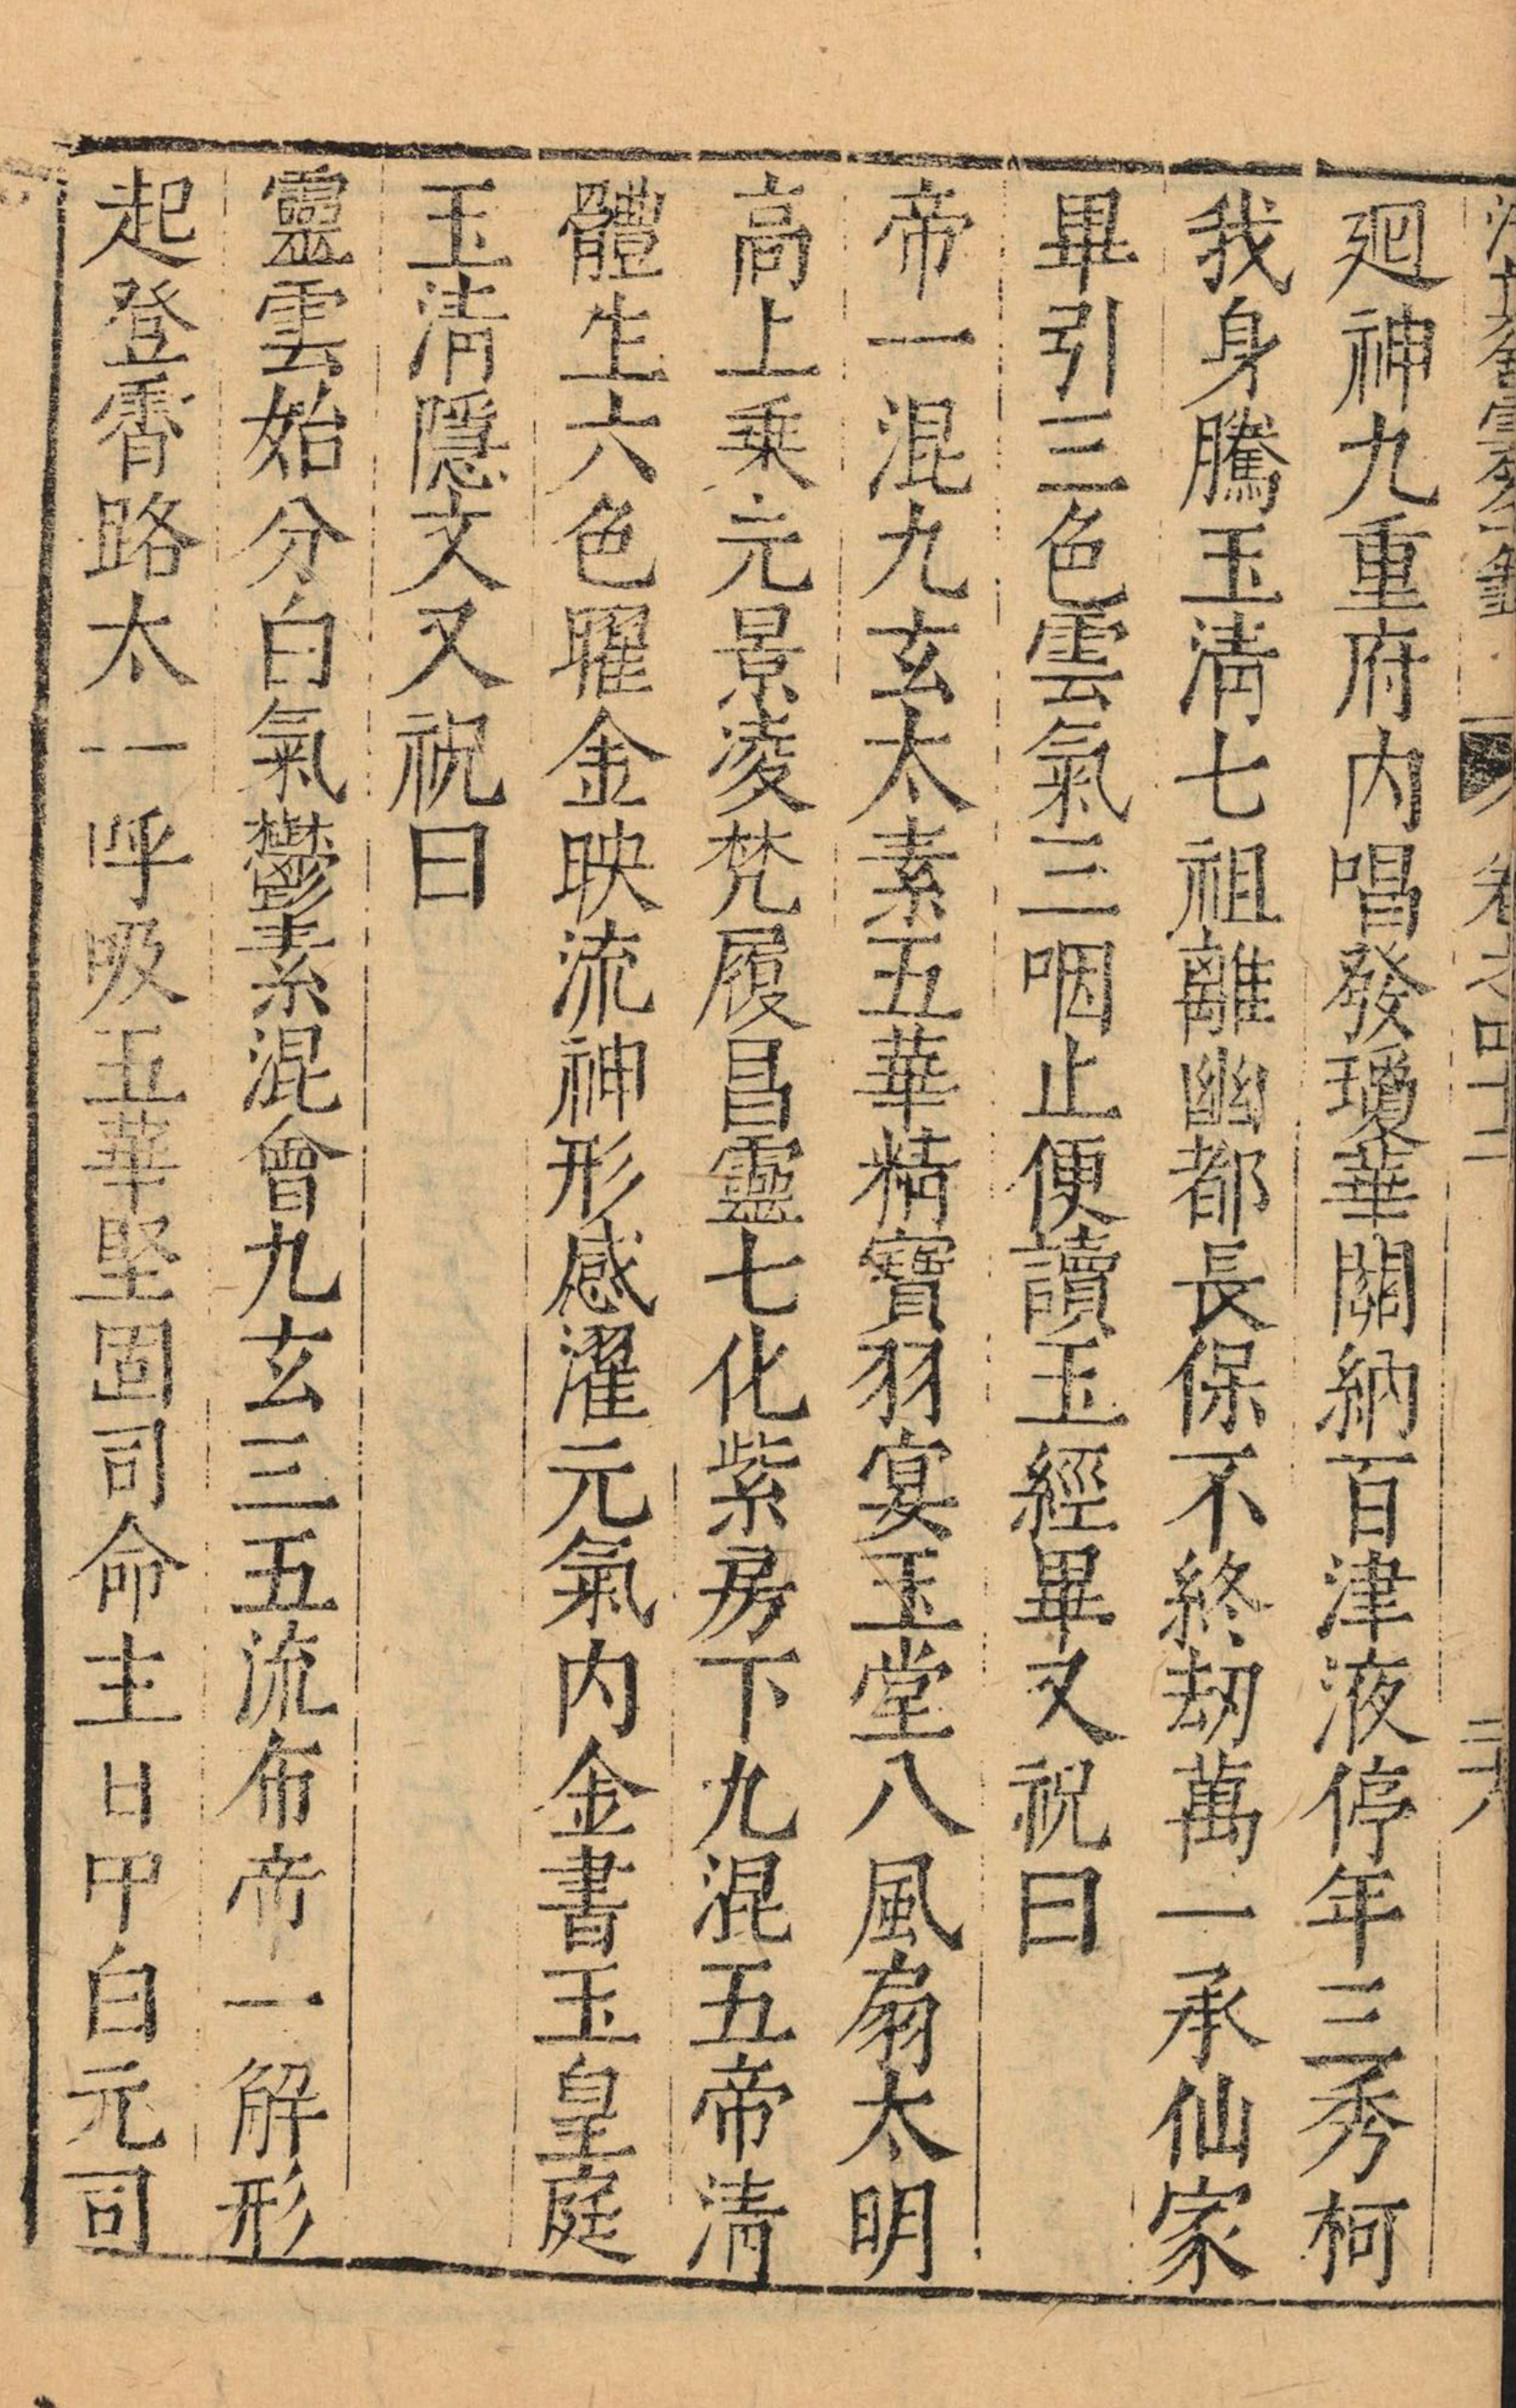 清真館雲笈七籤 卷之四十二 三十八
廻神九重府内唱發瓊華關納百津液停年三秀柯
我身騰玉清七祖離幽都長保不終劫萬一承仙家
畢引三色雲氣三咽止便讀玉經畢又祝曰
帝一混九玄太素五華精寶羽宴玉堂八風扇太明
高上乗元景凌梵履昌靈七化紫房下九混五帝清
體生六色曜金映流神形感濯元氣内金書玉皇庭
玉清隱文又祝曰
靈雲始分白氣鬱素混會九玄三五流布帝一解形
起登霄路太一呼吸玉華堅固司命主日甲白元司